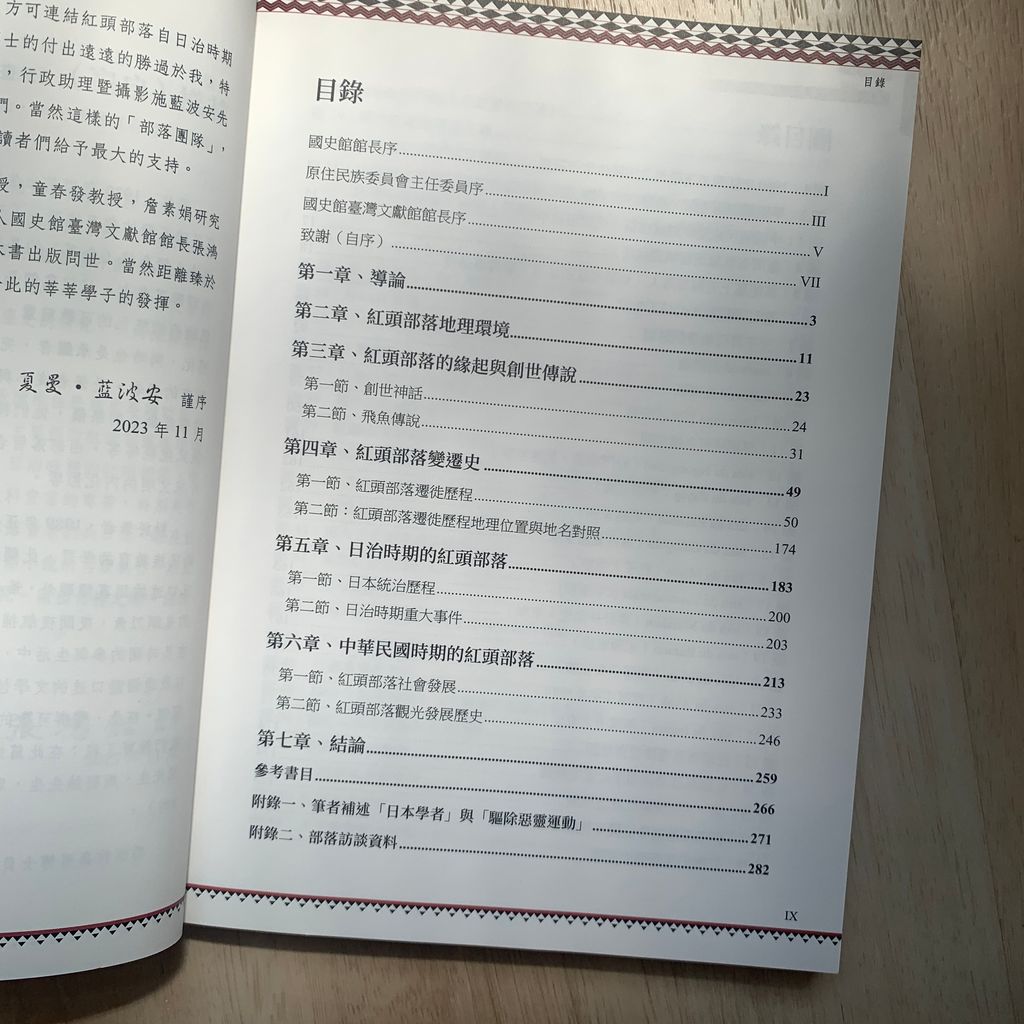 方可連結紅頭部落自日治時期
士的付出遠遠的勝過於我，特
，行政助理暨攝影施藍波安先
們。當然這樣的「部落團隊」，
讀者們給予最大的支持。
授，童春發教授，詹素娟研究
國史館臺灣文獻館館長張鴻
本書出版問世。當然距離臻於
此的莘莘學子的發揮。
夏曼·藍波安 謹序
2023 年 11 月
目錄
目錄
國史館館長序 I
原住民族委員會主任委員序 III
國史館臺灣文獻館館長序 V
致謝（自序） VII
第一章、導論 3
第二章、紅頭部落地理環境 11
第三章、紅頭部落的緣起與創世傳說 23
第一節、創世神話 24
第二節、飛魚傳說 31
第四章、紅頭部落變遷史 49
第一節、紅頭部落遷徙歷程 50
第二節：紅頭部落遷徙歷程地理位置與地名對照 174
第五章、日治時期的紅頭部落 183
第一節、日本統治歷程 200
第二節、日治時期重大事件 203
第六章、中華民國時期的紅頭部落 213
第一節、紅頭部落社會發展 233
第二節、紅頭部落觀光發展歷史 246
第七章、結論 259
參考書目 266
附錄一、筆者補述「日本學者」與「驅除惡靈運動」 271
附錄二、部落訪談資料 282
IX